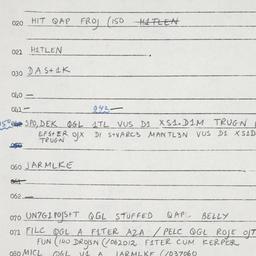 020 HIT QAP FROJ (150 HITLEN
021 HITLEN
030 DAS+1K
040 —
041 — 042 —
050 SPO, DEK QGL 1TL VUS D1 XS1.D1M TRUGN
EFS+ER OJX D1 S+VARC3 MANTL3N VUS D1 XS1D
TRUGN
060 JARMLKE
061
062 —
070 UN7G1POJS+T QGL STUFFED QAP. BELLY
071 FILC QGL A FLTER A2A / PELC QGL ROJE OJT
FUN (140 DROJSN (/062012 FITER CUM KERPER
080 MICL QGL V1 A JARMLKE (/037060